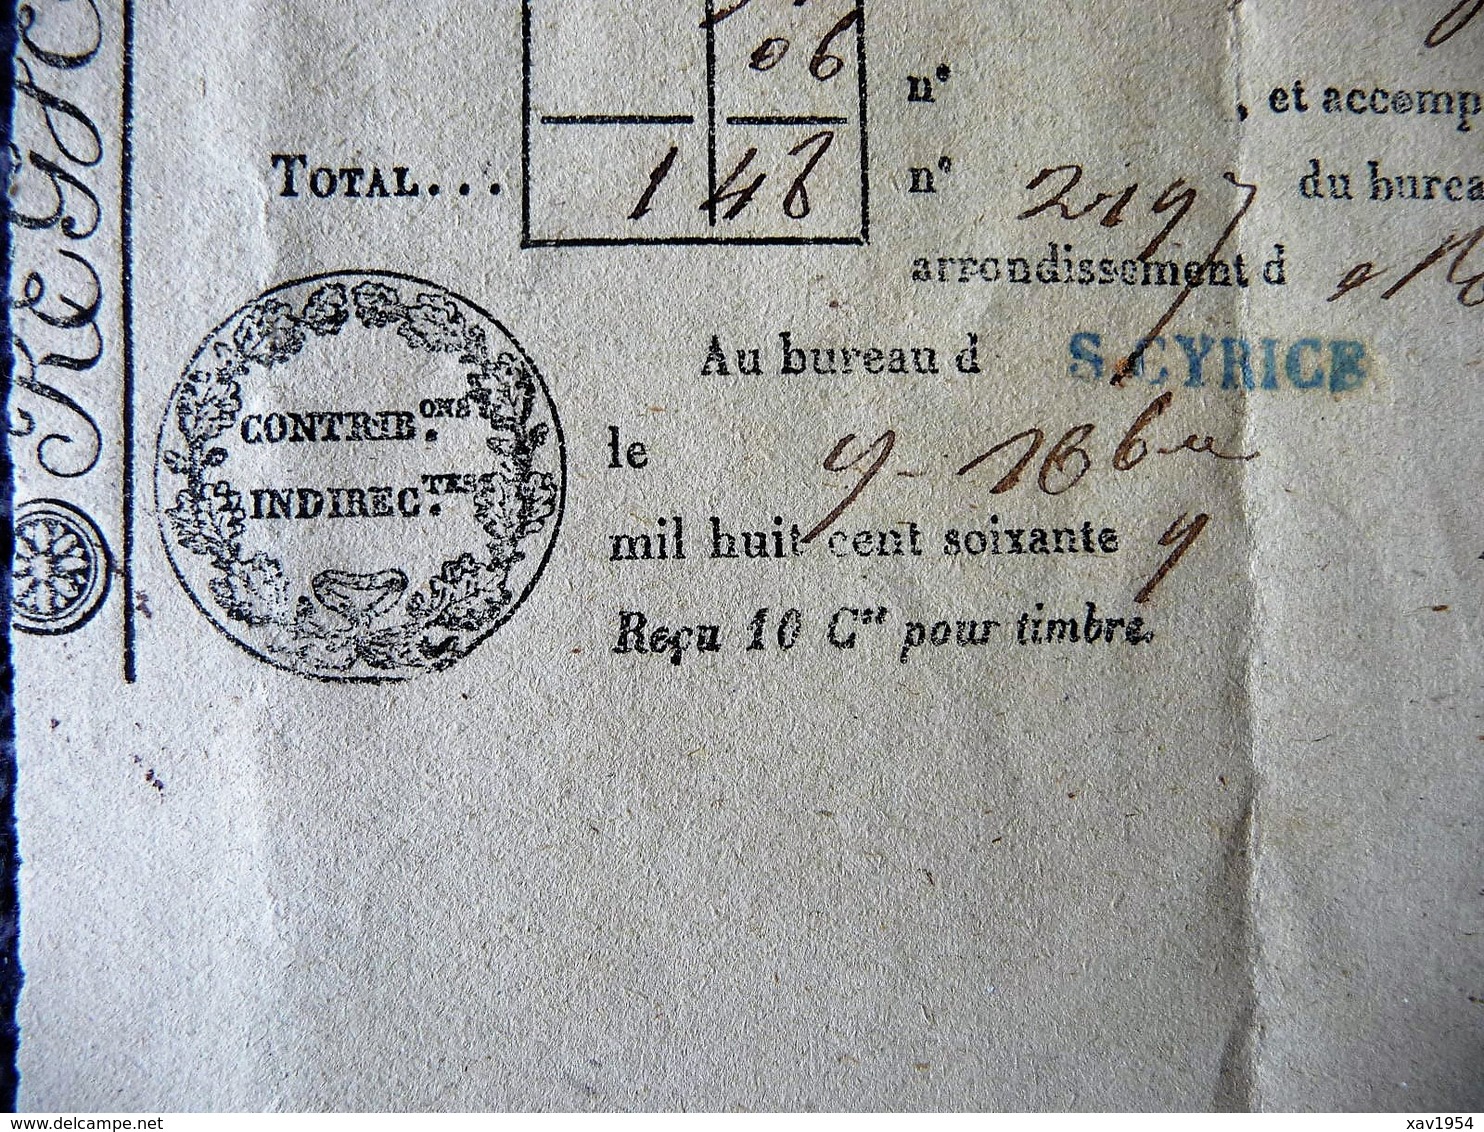 REGIS
06
n° , et accomp
TOTAL... 1 48 n° 2197 du burea
arrondissement d
Au bureau d S. CYRICE
CONTRIB.ONS
INDIREC.TES
le 9 - 10bre
mil huit cent soixante 9
Reçu 10 Ces pour timbre.
xav1954